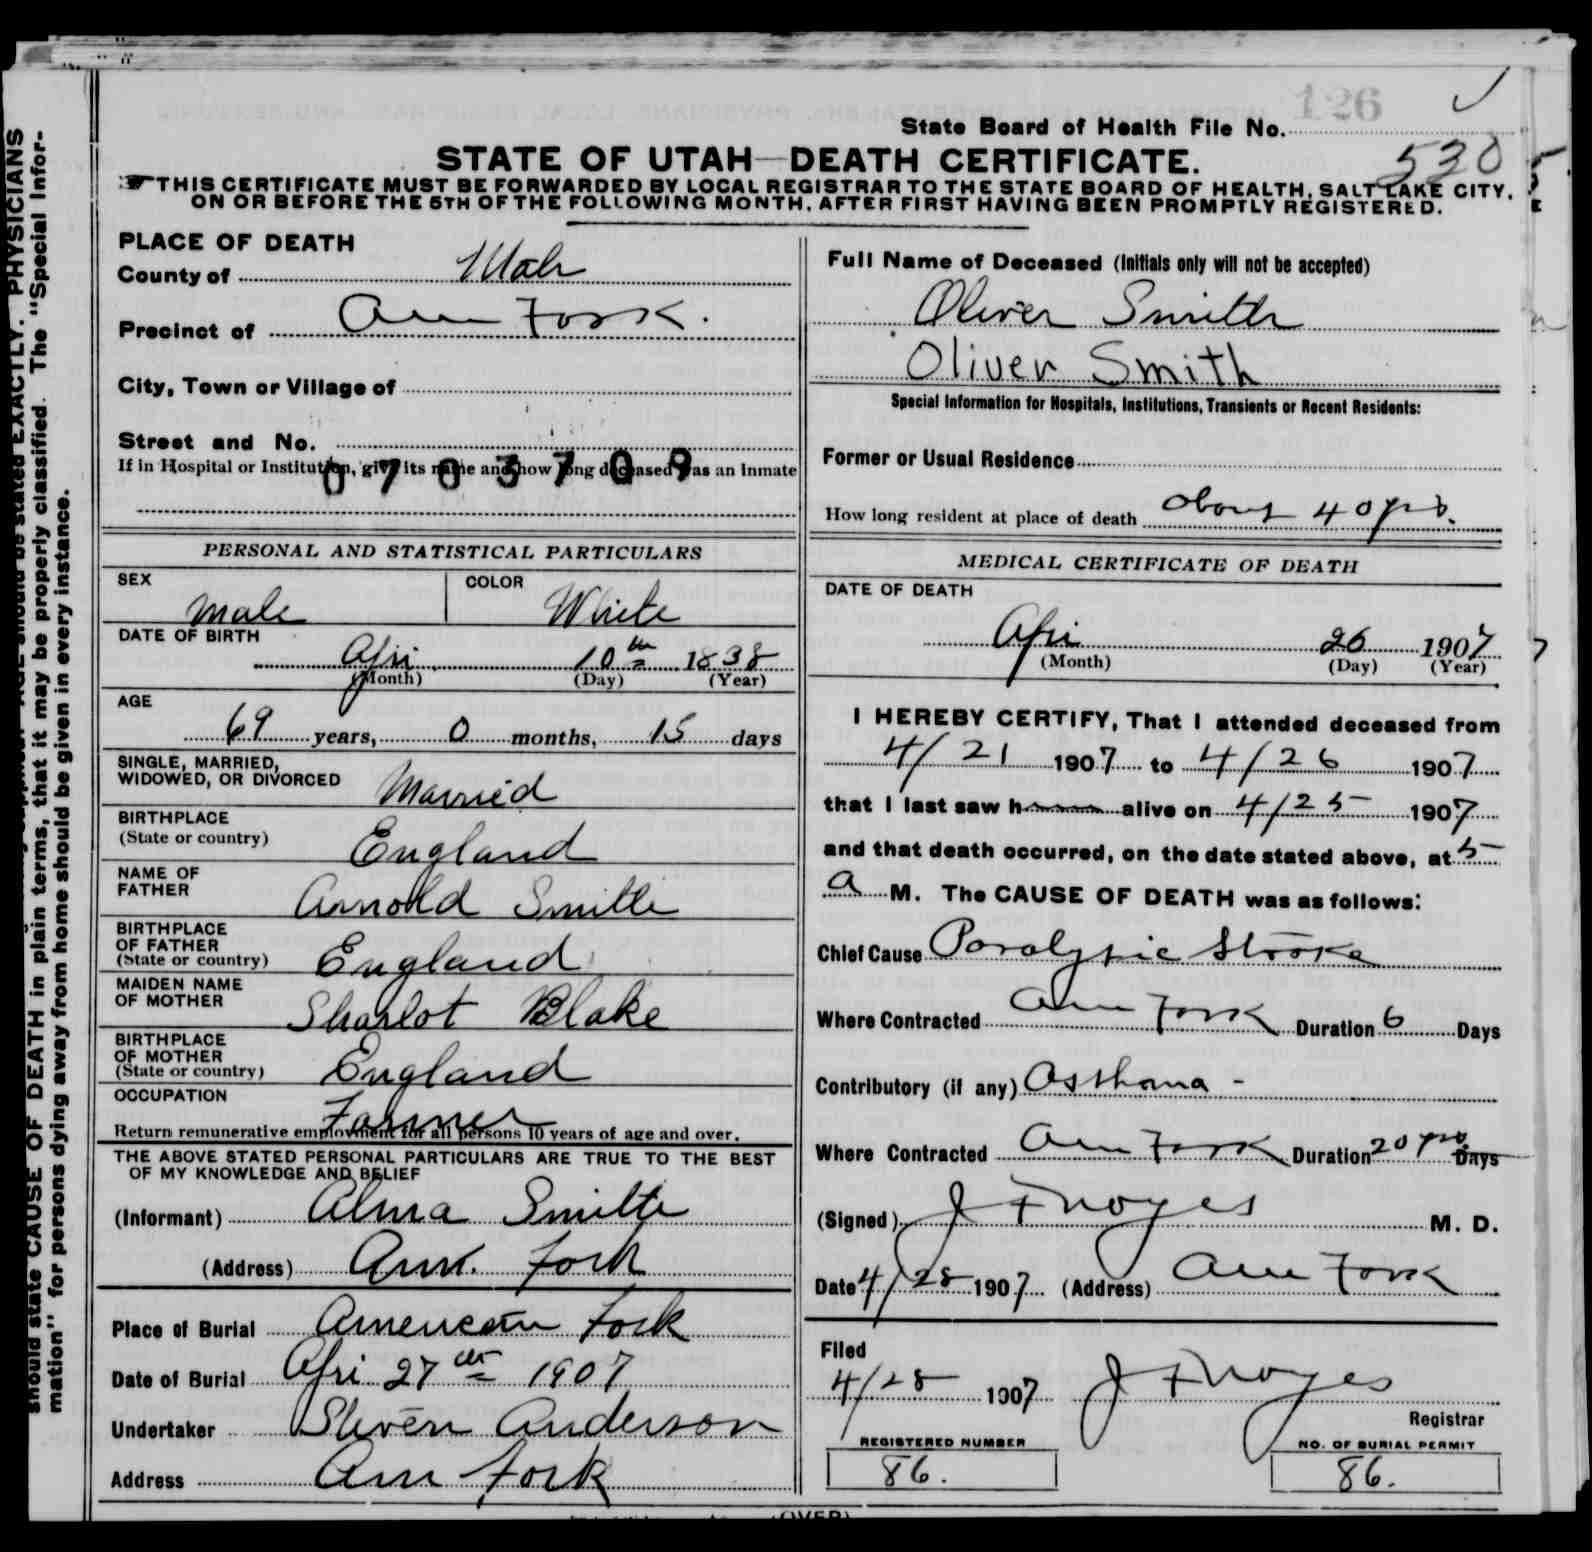 126
State Board of Health File No.
530
STATE OF UTAH—DEATH CERTIFICATE.
THIS CERTIFICATE MUST BE FORWARDED BY LOCAL REGISTRAR TO THE STATE BOARD OF HEALTH, SALT LAKE CITY,
ON OR BEFORE THE 5TH OF THE FOLLOWING MONTH, AFTER FIRST HAVING BEEN PROMPTLY REGISTERED.
PLACE OF DEATH
County of Utah
Precinct of Am Fork.
City, Town or Village of
Street and No.
If in Hospital or Institution, give its name and how long deceased was an Inmate
0703709
Full Name of Deceased (Initials only will not be accepted)
Oliver Smith
Oliver Smith
Special Information for Hospitals, Institutions, Transients or Recent Residents:
Former or Usual Residence
How long resident at place of death about 40 yrs.
PERSONAL AND STATISTICAL PARTICULARS
SEX Male
COLOR White
DATE OF BIRTH
Apri 10th 1838
(Month) (Day) (Year)
AGE
69 years, 0 months, 15 days
SINGLE, MARRIED,
WIDOWED, OR DIVORCED Married
BIRTHPLACE
(State or country) England
NAME OF
FATHER Arnold Smith
BIRTHPLACE
OF FATHER
(State or country) England
MAIDEN NAME
OF MOTHER Sharlot Blake
BIRTHPLACE
OF MOTHER
(State or country) England
OCCUPATION
Farmer
Return remunerative employment for all persons 10 years of age and over.
THE ABOVE STATED PERSONAL PARTICULARS ARE TRUE TO THE BEST
OF MY KNOWLEDGE AND BELIEF
(Informant) Alma Smith
(Address) Am. Fork
Place of Burial American Fork
Date of Burial Apri 27th 1907
Undertaker Steven Anderson
Address Am Fork
MEDICAL CERTIFICATE OF DEATH
DATE OF DEATH
Apri 26 1907
(Month) (Day) (Year)
I HEREBY CERTIFY, That I attended deceased from
4/21 1907 to 4/26 1907
that I last saw h alive on 4/25 1907
and that death occurred, on the date stated above, at 5
a M. The CAUSE OF DEATH was as follows:
Chief Cause Paralytic Stroke
Where Contracted Am Fork Duration 6 Days
Contributory (if any) Asthma -
Where Contracted Am Fork Duration 20 yrs. Days
(Signed) J F Noyes M. D.
Date 4/28 1907 (Address) Am Fork
Filed
4/28 1907 J F Noyes
Registrar
REGISTERED NUMBER
86.
NO. OF BURIAL PERMIT
86.
(OVER)
should state CAUSE OF DEATH in plain terms, that it may be properly classified. The "Special Infor-
mation" for persons dying away from home should be given in every instance.